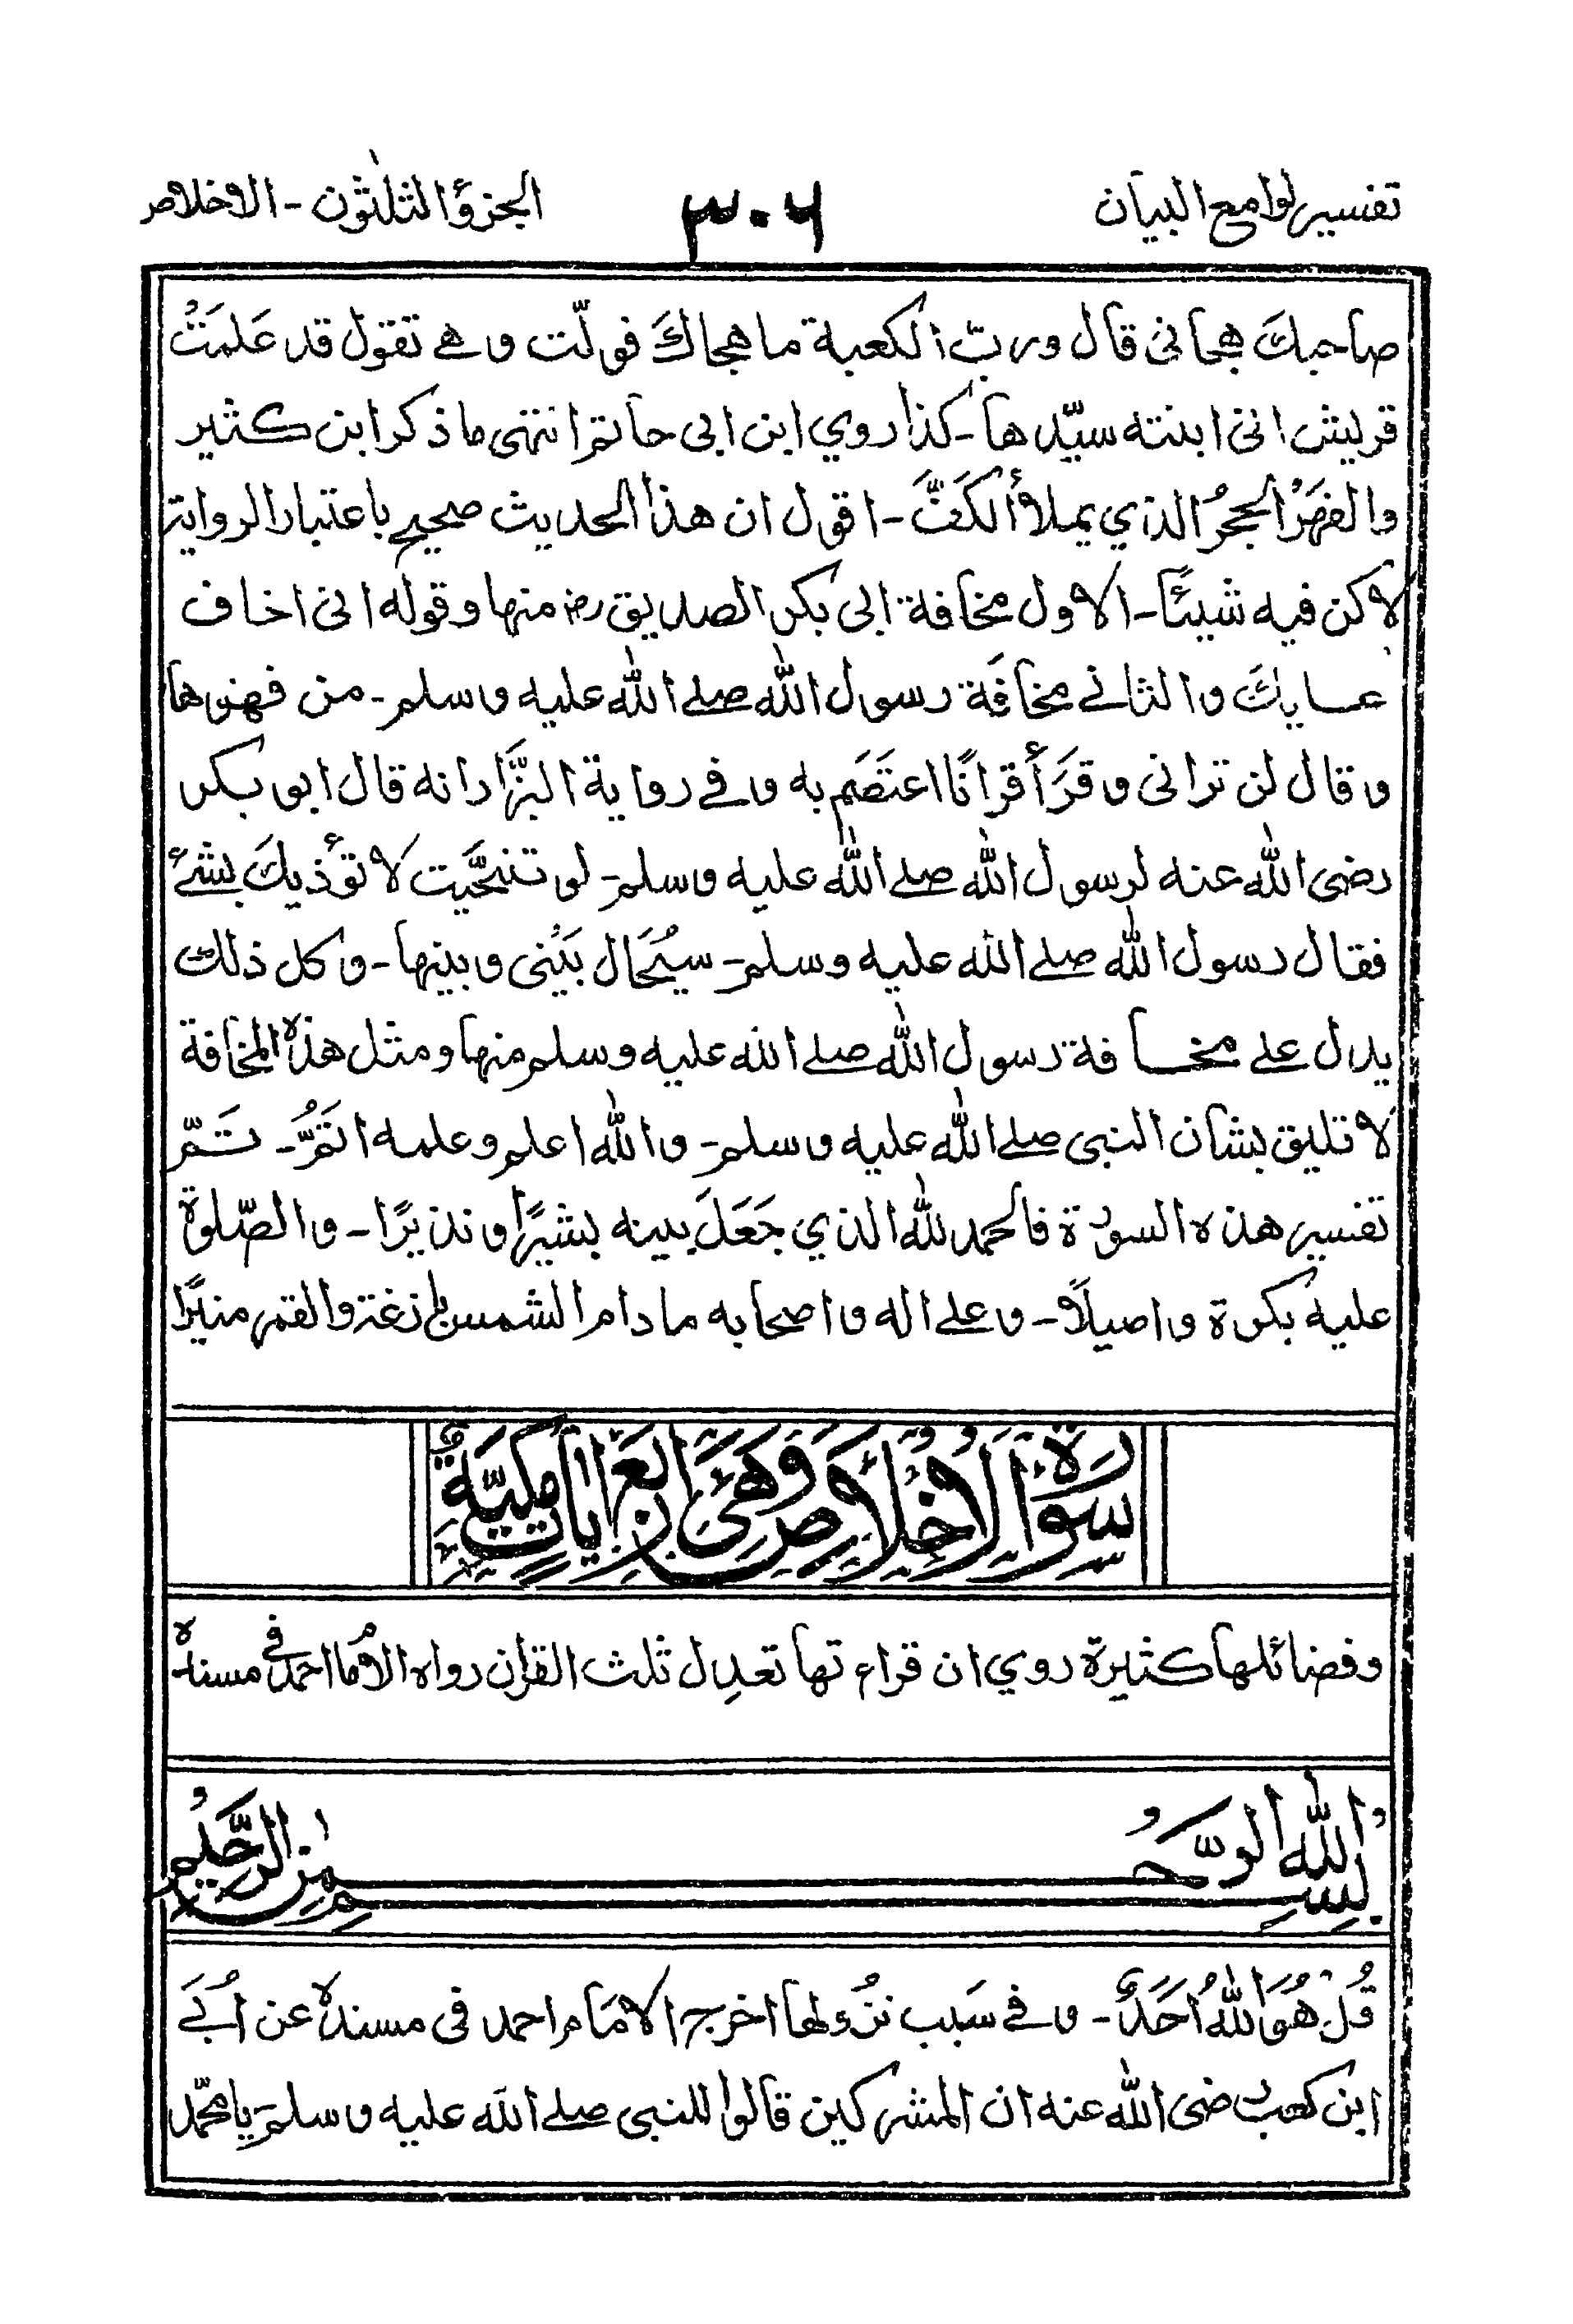 تفسير لوامع البيان ٣٠٦ الجزؤ الثلثون - الاخلاص
صاحبك هجانى قال ورب الكعبة ما هجاك فولّت وهے تقول قد عَلمَتُ
قريش انى ابنته سيّدها - كذا روي ابن ابى حاتم انتهى ما ذكر ابن كثير
والفهَرُ الحجرُ الذي يملأ الكَفَّ - اقول ان هذا الحديث صحيح باعتبار الرواية
لاكن فيه شيئًا - الاول مخافة ابى بكر الصديق رض منها وقوله انى اخاف
عــايك والثانے مخافَة رسول الله صلے الله عليه وسلم - من فهرها
وقال لن ترانى وقَرَأ قرانًا اعتَصَم به وفے رواية البزَّار انه قال ابو بكر
رضى الله عنه لرسول الله صلے الله عليه وسلم - لو تنحَّيت لا تؤذيك بشئ
فقال رسول الله صلے الله عليه وسلم - سيُحَال بَيْنى وبينها - وكل ذلك
يدل علے مخــافة رسول الله صلے الله عليه وسلم منها ومثل هذه المخافة
لا تليق بشان النبى صلے الله عليه وسلم - والله اعلم وعلمه اتمَُّ - تَــمّ
تفسير هذه السورة فالحمد لله الذي جَعَلَ بينه بشيًرا ونذيرًا - والصّلوة
عليه بكرة واصيلًا - وعلے اله واصحابه ما دام الشمس بازغة والقمر منيرًا
سُوْرَةُ الْاِخْلَاصِ وَهِىَ اَرْبَعُ اٰيَاتٍ مَكِّيَّةٌ
وفضائلها كثيرة روي ان قراءتها تعدِل ثلث القران رواه الاماُم احمد فى مسنده
بسم الله الرحمن الرحيم
قُلْ هُوَ اللهُ اَحَدٌ - وفے سَبب نزُولها اخرج الامَام احمد فى مسنده عن اُبَے
ابن كعب رضى الله عنه ان المشركين قالوا للنبى صلے الله عليه وسلم يا محمّد